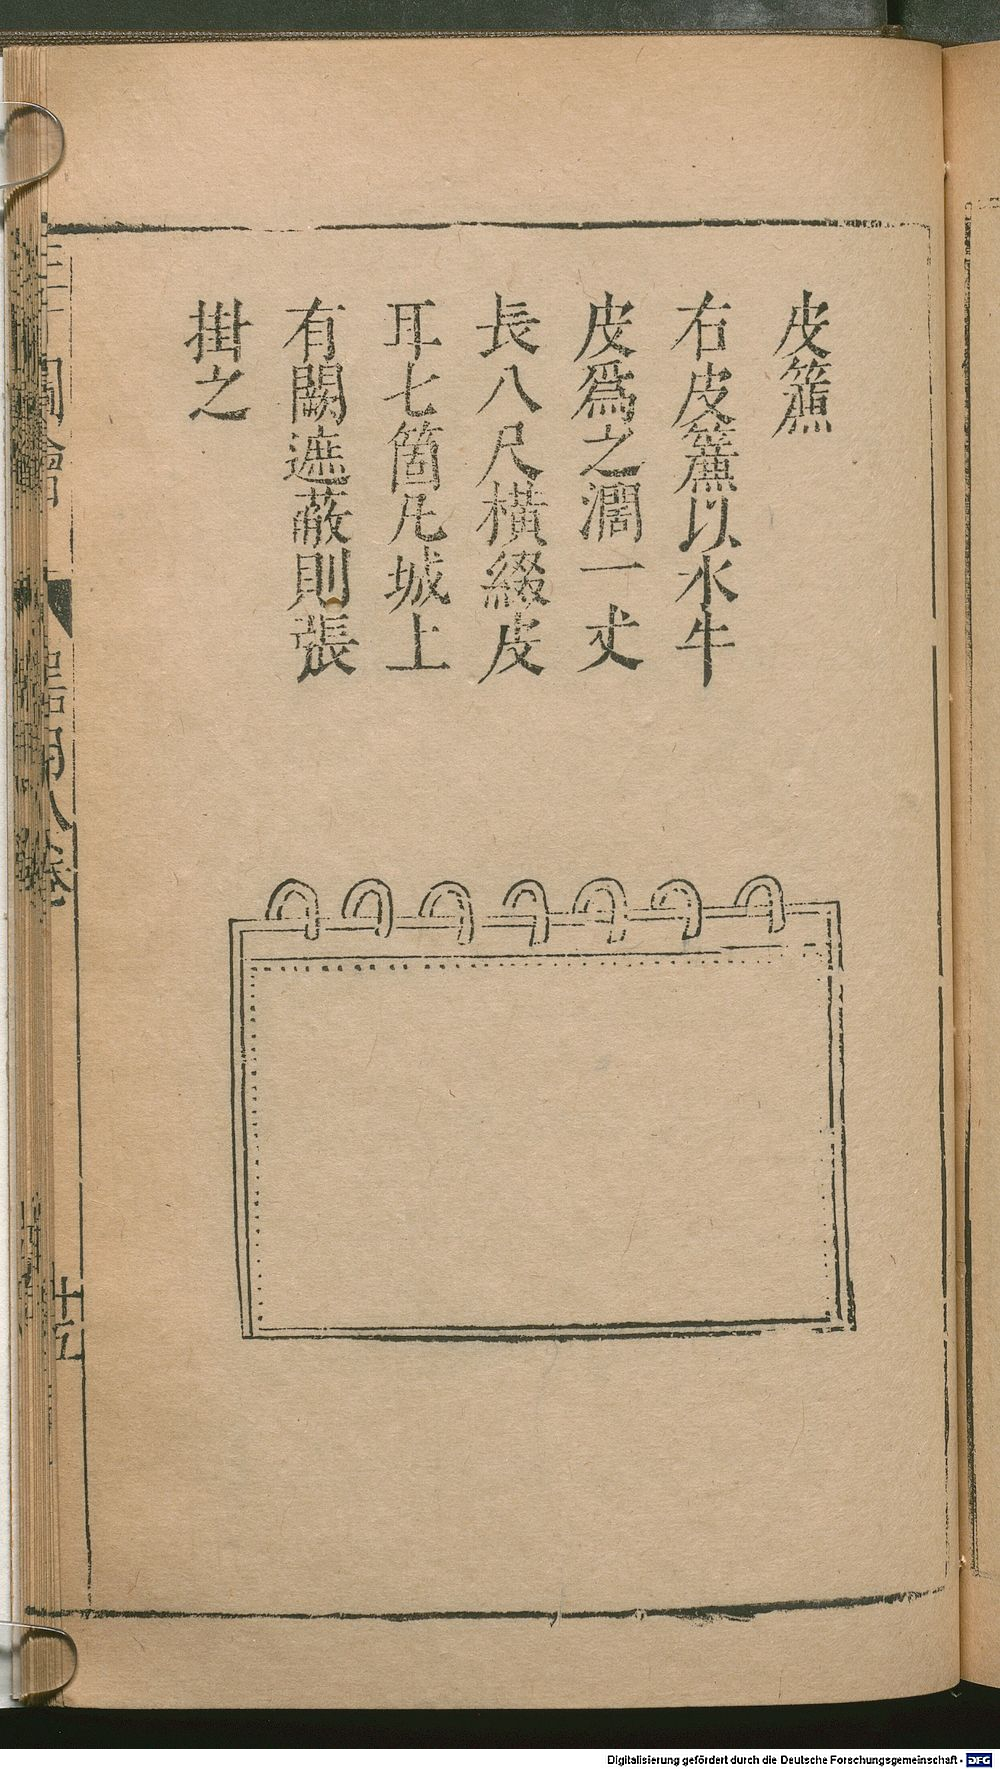 皮簾
右皮簾以水牛
皮爲之濶一丈
長八尺橫綴皮
耳七箇凡城上
有闕遮蔽則張
掛之
Digitalisierung gefördert durch die Deutsche Forschungsgemeinschaft - DFG